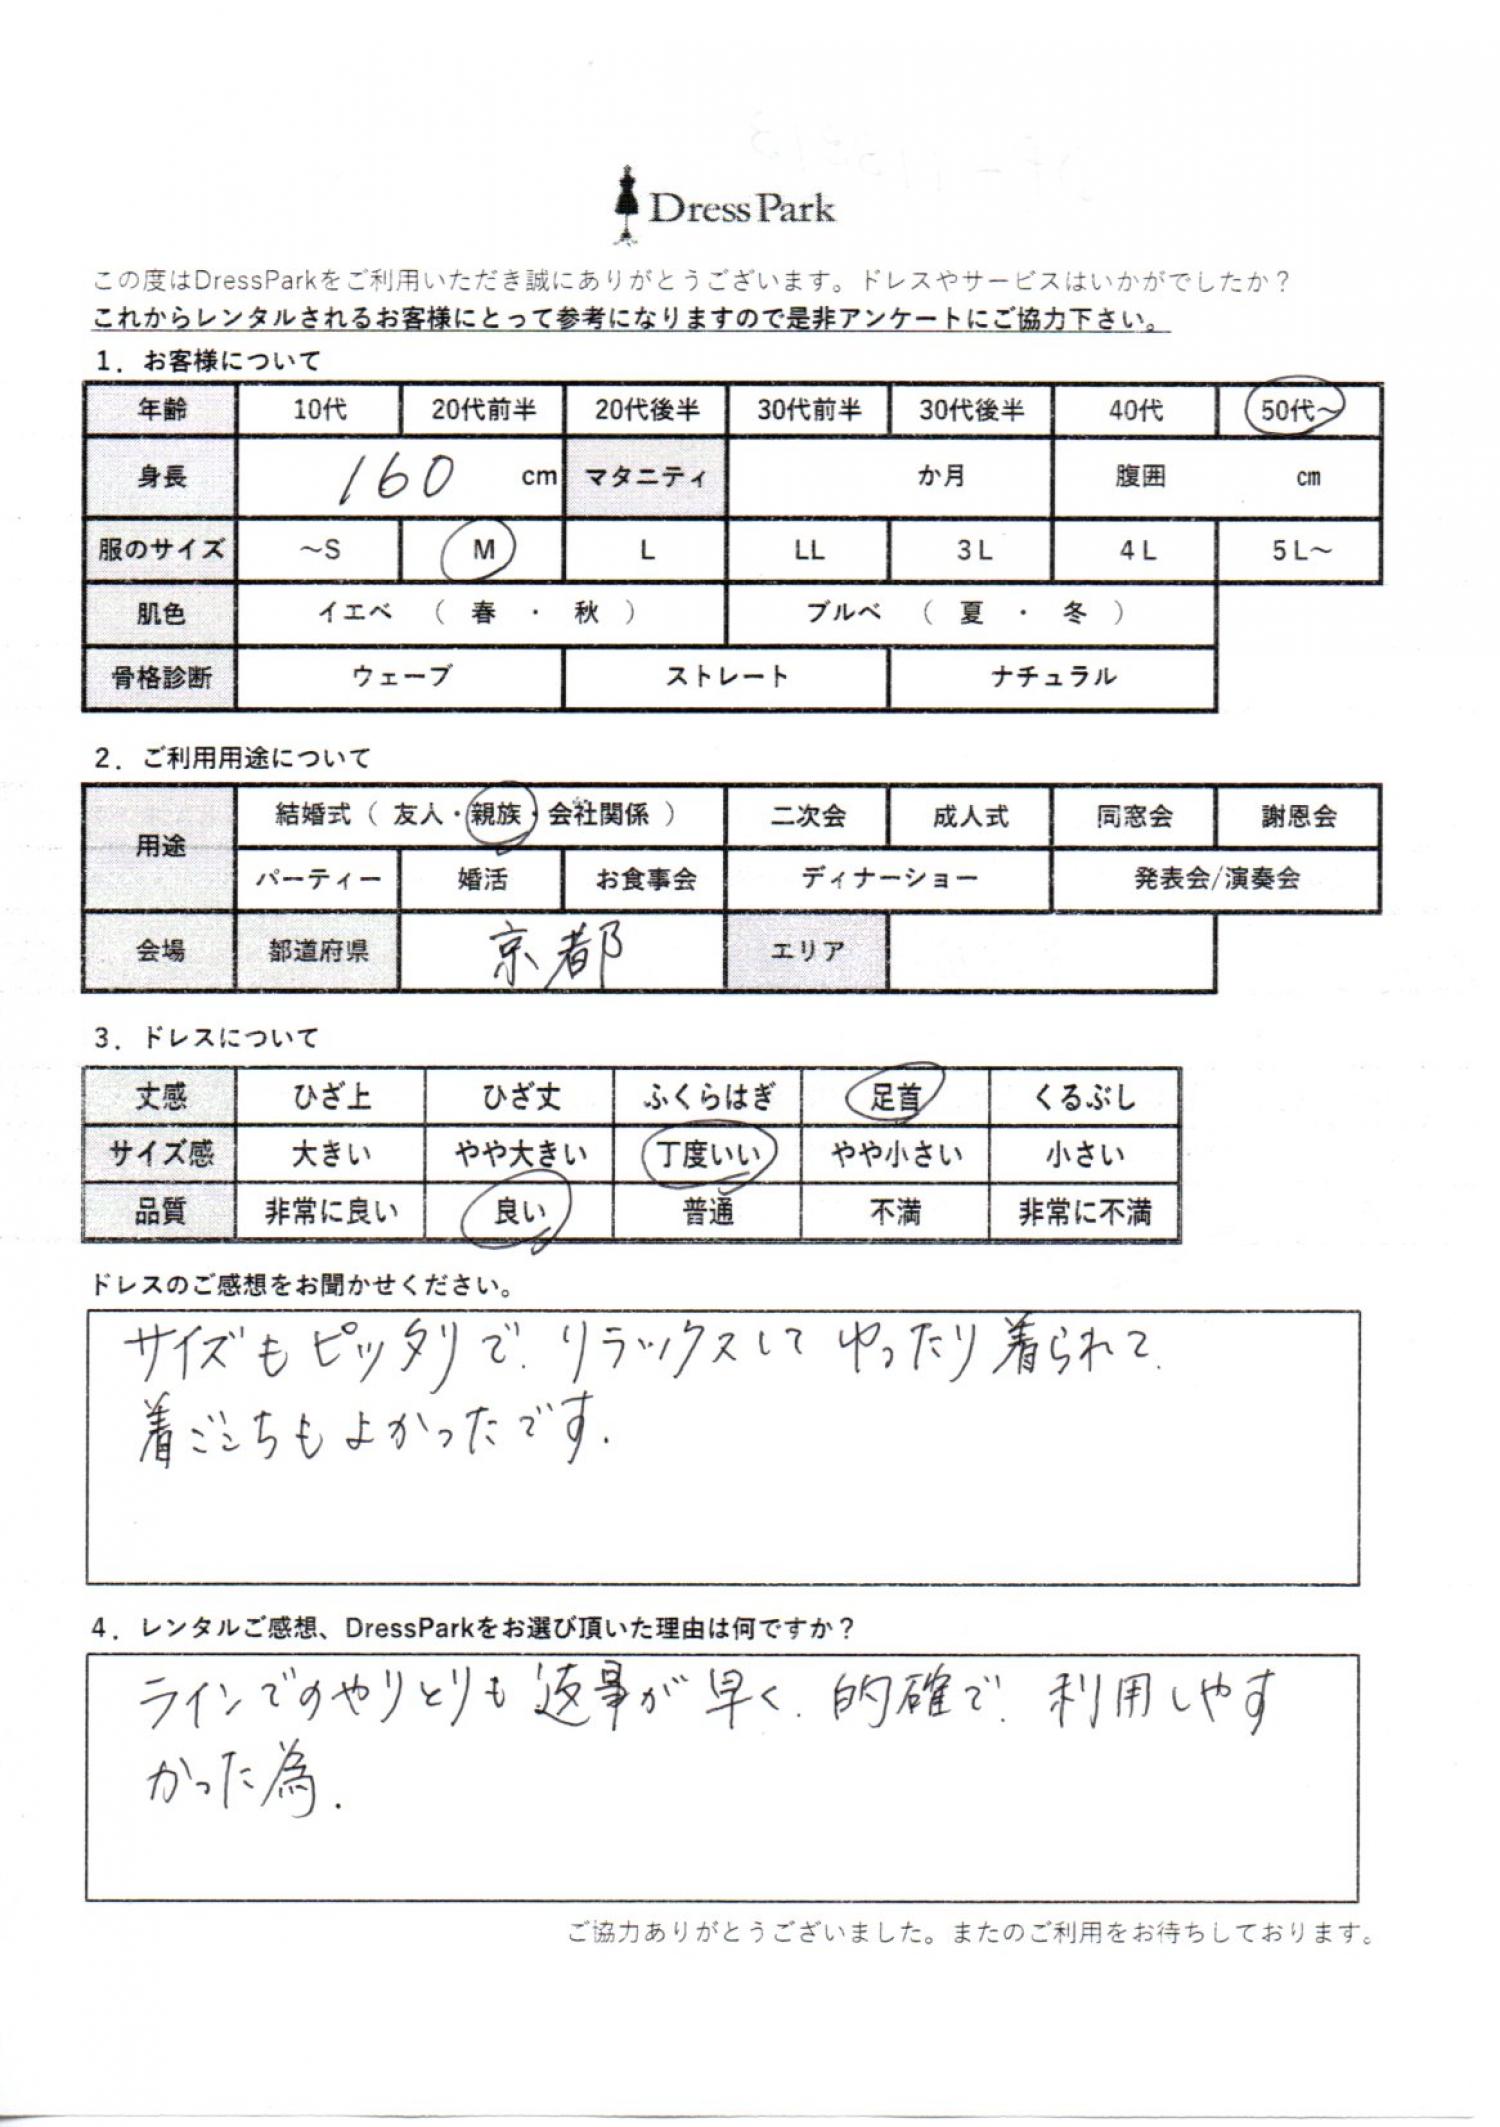 DressPark
この度はDressParkをご利用いただき誠にありがとうございます。ドレスやサービスはいかがでしたか？
これからレンタルされるお客様にとって参考になりますので是非アンケートにご協力下さい。
1．お客様について
年齢 10代 20代前半 20代後半 30代前半 30代後半 40代 50代～
身長 160 cm マタニティ か月 腹囲 cm
服のサイズ ～S M L LL 3L 4L 5L～
肌色 イエベ （ 春 ・ 秋 ） ブルベ （ 夏 ・ 冬 ）
骨格診断 ウェーブ ストレート ナチュラル
2．ご利用用途について
用途 結婚式（ 友人・親族・会社関係 ） 二次会 成人式 同窓会 謝恩会
パーティー 婚活 お食事会 ディナーショー 発表会/演奏会
会場 都道府県 京都 エリア
3．ドレスについて
丈感 ひざ上 ひざ丈 ふくらはぎ 足首 くるぶし
サイズ感 大きい やや大きい 丁度いい やや小さい 小さい
品質 非常に良い 良い 普通 不満 非常に不満
ドレスのご感想をお聞かせください。
サイズもピッタリで、リラックスしてゆったり着られて、
着ごこちもよかったです.
4．レンタルご感想、DressParkをお選び頂いた理由は何ですか？
ラインでのやりとりも返事が早く、的確で、利用しやす
かった為.
ご協力ありがとうございました。またのご利用をお待ちしております。